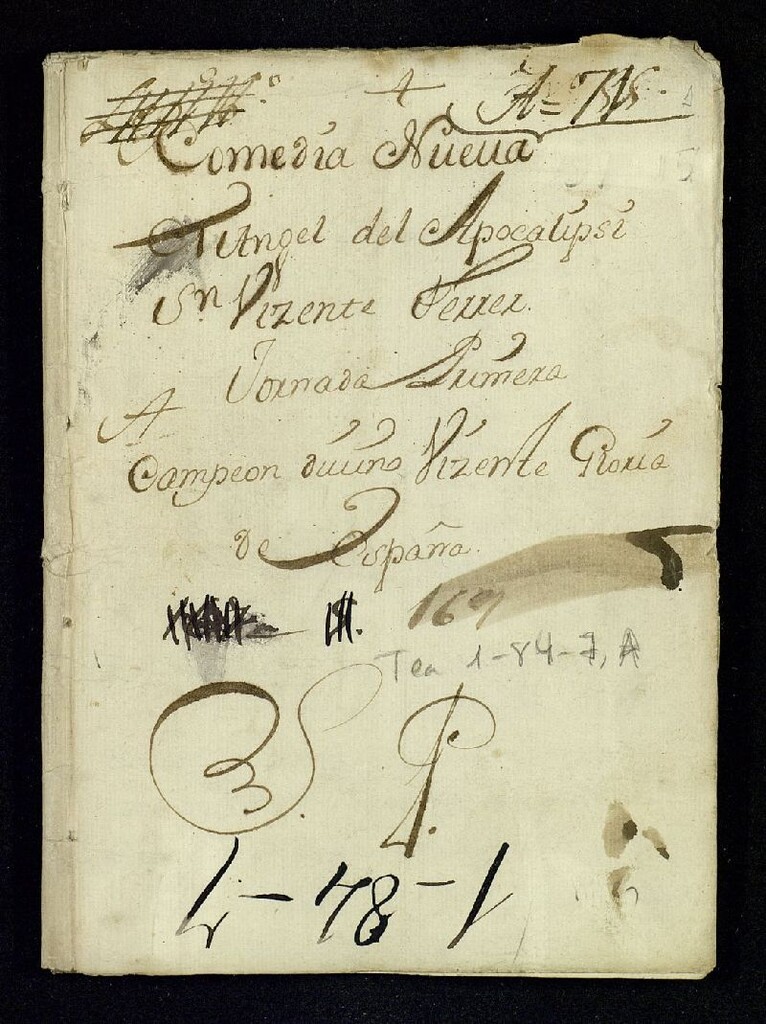 Comedia Nueua
El Angel del Apocalipsi
Sn Vizente Ferrer.
Jornada Primera
A
Campeon diuino Vizente Gloria
de España.
169
Tea 1-84-7, A
L-78-1